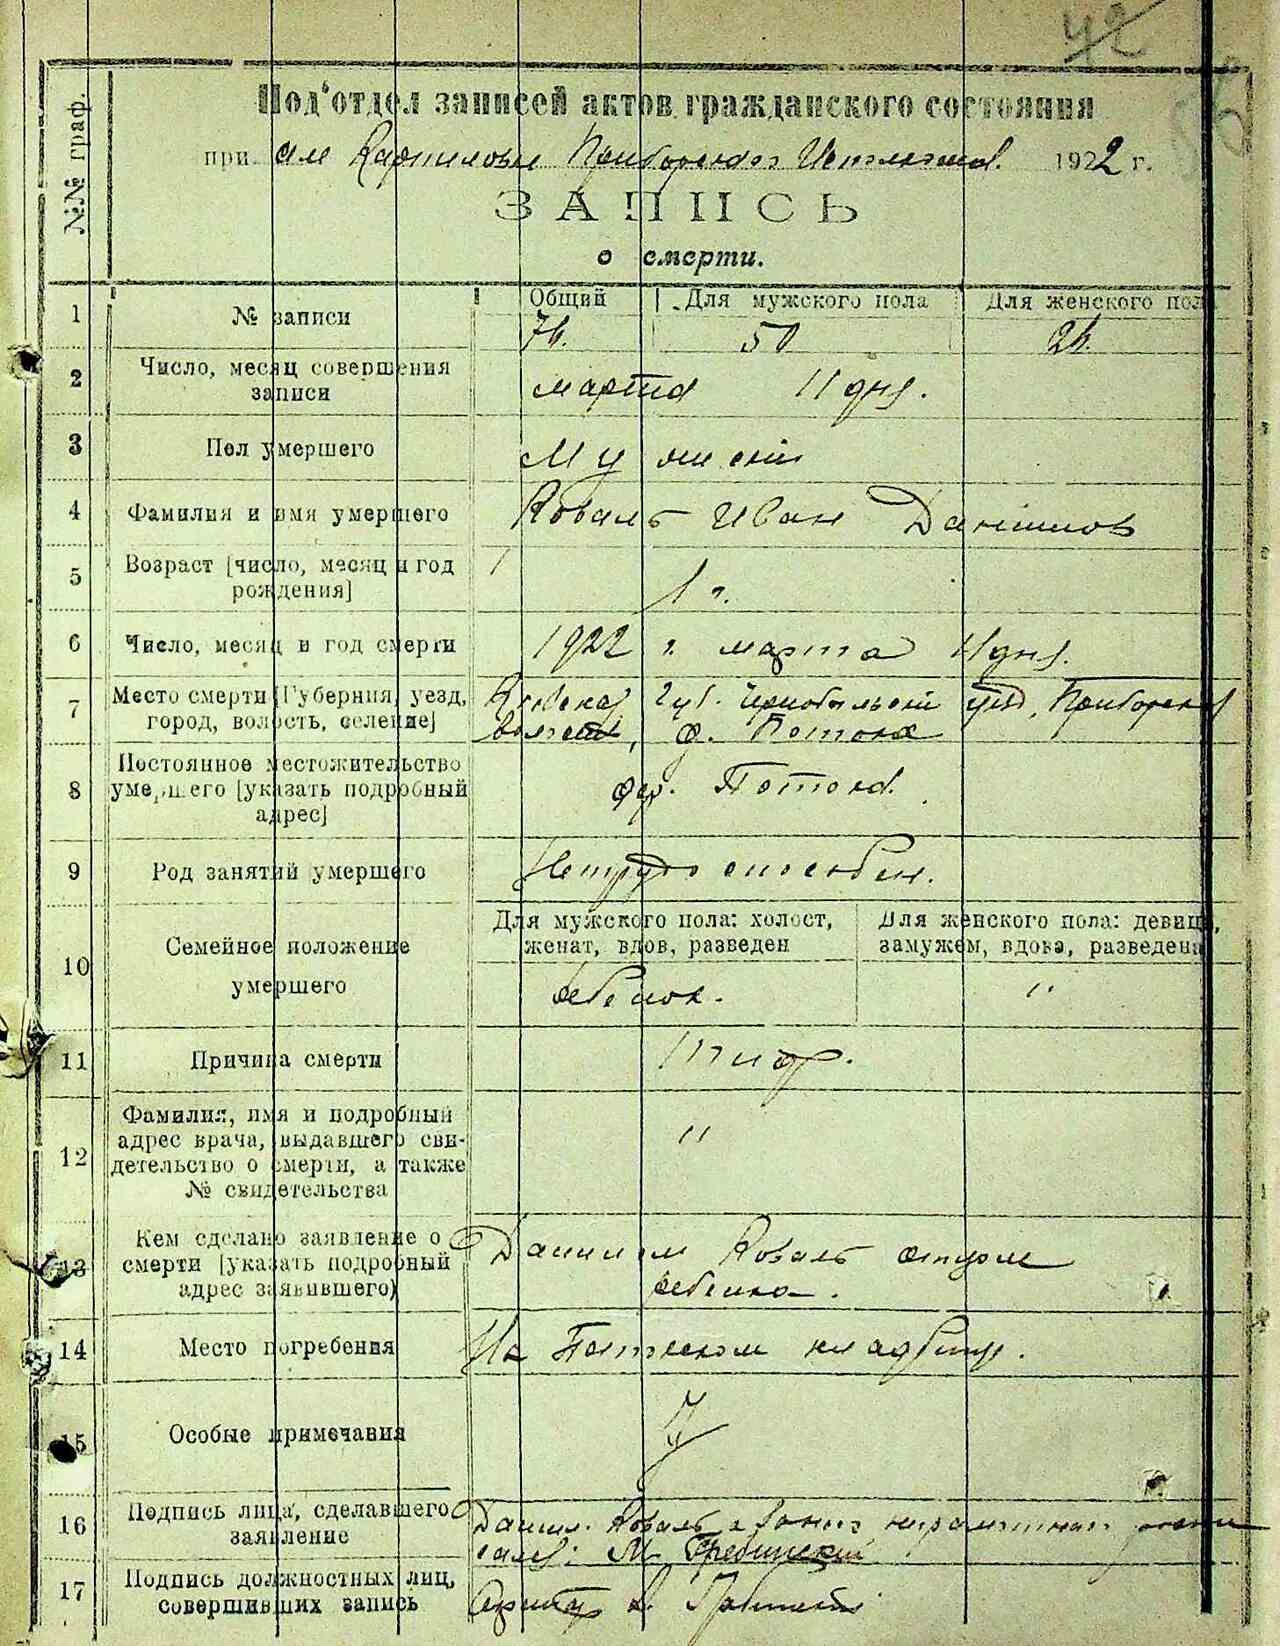 42
№№ граф.
Под'отдел записей актов гражданского состояния
при 1922 г.
ЗАПИСЬ
о смерти.
1 № записи Общий Для мужского пола Для женского пола
76. 50 26.
2 Число, месяц совершения записи марта 11 дня.
3 Пол умершего Мужский
4 Фамилия и имя умершего Коваль Иван Данилов
5 Возраст [число, месяц и год рождения] 1 г.
6 Число, месяц и год смерти 1922 г. марта 11 дня.
7 Место смерти [Губерния, уезд, город, волость, селение] Киевская губ. Чернобыльский уезд, Приборская
волость, д. Потока
8 Постоянное местожительство умершего [указать подробный адрес] дер. Потока.
9 Род занятий умершего Нетрудоспособен.
10 Семейное положение умершего Для мужского пола: холост, женат, вдов, разведен Для женского пола: девица, замужем, вдова, разведена
ребенок. "
11 Причина смерти Тиф.
12 Фамилия, имя и подробный адрес врача, выдавшего свидетельство о смерти, а также № свидетельства "
13 Кем сделано заявление о смерти [указать подробный адрес заявившего) Данилом Коваль отцом
ребенка.
14 Место погребения На кладбище.
15 Особые примечания
16 Подпись лица, сделавшего заявление Данил Коваль неграмотный
М.
17 Подпись должностных лиц, совершивших запись